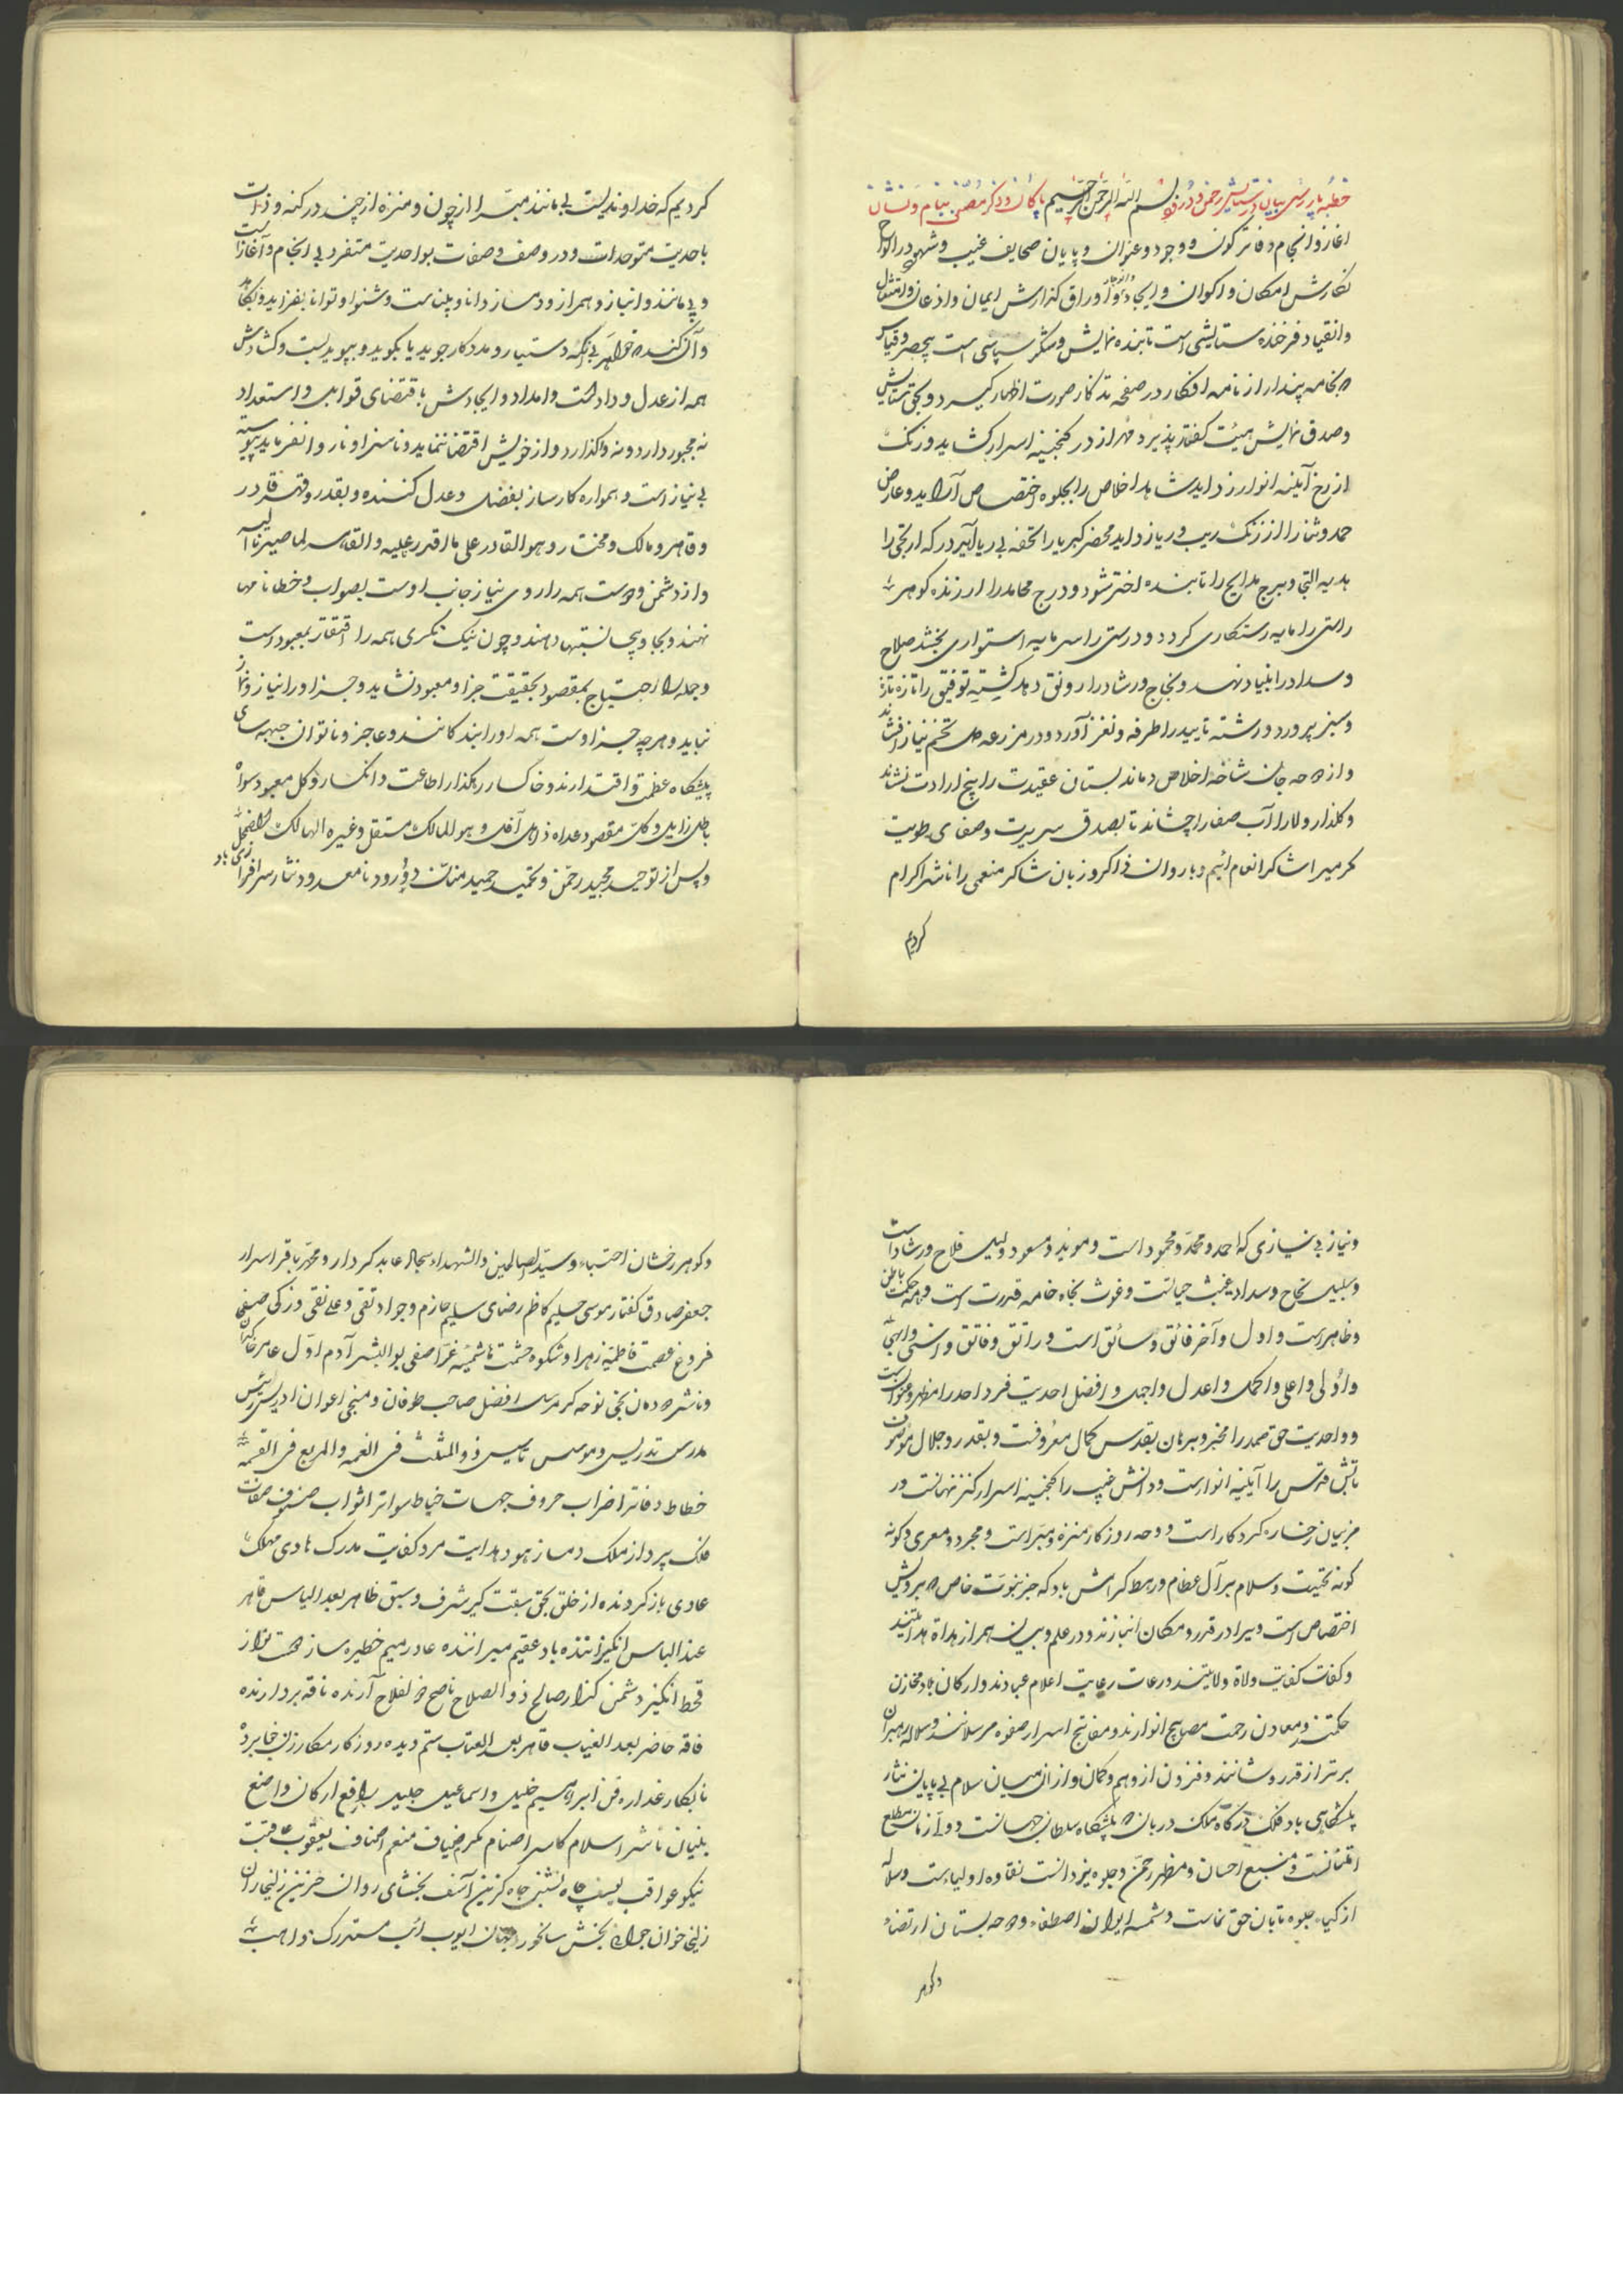 خطبهٔ پارسی بیان در ستایش رحمن و درود بسم الله الرحمن الرحیم پاکان و ذکر بنام و نشان
آغاز و انجام دفاتر کون و وجود و عنوان و پایان صحایف غیب و شهود در الواح
نگارش امکان و اکوان و ایجاد و اوراق گذارش ایمان و اذعان و امتثال
وانقیاد فرخنده ستایشی است تابنده نمایش و شکر سپاسی است بیحصر و قیاس
خامه پندار از نامه افکار در صفحه تذکار صورت اظهار گیرد و بحق ستایش
وصدق نمایش هیئت گفتار پذیرد مهر از در گنجینه اسرار گشاید و زنگ
از رخ آیینه انوار زداید شاهد اخلاص را بجلوه اختصاص آراید و عارض
حمد و ثنا را از زنگ ریب و ریا زداید محضر کبریا را تحفه بی ریا آیر در که ارتجی را
هدیه التجی و برج مدایح را تابنده اختر شود و درج محامد را ارزنده گوهر
راستی را مایه رستگاری گردد و درستی را سرمایه استواری بخشد صلاح
وسداد را بنیاد نهد و نجاح و رشاد را رونق دهد کشته توفیق را تازه تازه
وسبز پرورد و رشته تایید را طرفه و نغز آورد و در مزرعه دل تخم نیاز افشاند
واز دوحه جان شاخه اخلاص دماند بستان عقیدت را بیخ ارادت نشاند
وگلذار ولا را آب صفا را چشاند تا بصدق سریرت و صفای طویت
مکرمیرا شاکر انعام ائیم و با روان ذاکر و زبان شاکر منعمی را ناشر اکرام
کردیم
کردیم که خداوندیست بی مانند مبرا از چون و منزه از چند در کنه و ذات
باحدیت متوحدات و در وصف و صفات بواحدیت متفرد بی انجام و آغاز است
وبی مانند و انباز و همراز و دمساز دانا و بیناست و شنوا و توانا بفزاید و بکاهد
وآن کند که خواهد بی آنکه دستیار و مددکار جوید یا بگوید و بپوید بست و گشادش
همه از عدل و داد است و امداد و ایجادش باقتضای قوابل و استعداد
نه مجبور دارد و نه واگذارد و از خویش اقتضا ننماید و ناسزا و ناروا نفرماید پیوسته
بی نیاز است و همواره کارساز بفضل و عدل کننده و بقدر و قهر قادر
وقاهر و مالک و مختار و هو القادر علی ما اقدر علیه و القاهر لما صیرنا الیه
واز دشمن و دوست همه را روی نیاز جانب اوست بصواب و خطا نامها
نهند و بجا و بیجا نسبتها دهند و چون نیک نگری همه را افتقار بمعبود است
وجمله را احتیاج بمقصود بحقیقت جز او معبود نشاید و جز او را نیاز و نماز
نباید و هرچه جز اوست همه او را بندگانند و عاجز و ناتوان جبهه سای
پیشگاه عظمت و اقتدارند و خاکسار رهگذار اطاعت و انکسار و کل معبود سواه
باطل زایل و کل مقصود عداه ذاهل آفل و هو المالک مستقل و غیره الهالک المضمحل
وپس از توحید مجید رحمن و تحمید حمید منان درود نامعدود نثار سرافرازی باد
ونیاز بی نیازی که احمد و محمد و محمود است و موید و مسعود دلیل فلاح و رشاد است
وسبیل نجاح و سداد غیث حیاتست و غوث نجاه خامه قدرت است و نامه حکمت باطن
وظاهر است و اول و آخر فائق و سائق است و راتق و فاتق و اسنی و ابهی
واولی و اعلی و اکمل و اعدل و اجمل و افضل احدیت فرد احد را مظهر و عنوان است
و واحدیت حق صمد را مخبر و برهان بقدس کمال معروفست و بقدر و جلال موصوف
تابش قدس را آیینه انوار است و دانش غیب را گنجینه اسرار کنز نهانست در
مزیبان رخساره کردگار است و وجه روزگار منزه و مبرا است و مجرد و معری و گونه
گونه تحیت و سلام بر آل عظام و رهط گرامش باد که جز نبوت خاص هر بروئیش
اختصاص است ویرا در قدر و مکان انبازند و در علم و بیان همراز هداة هدایتند
وکفات کفایت ولاة ولایتند و رعات رعایت اعلام عبادند و ارکان بلاد مخازن
حکمتند و معادن رحمت مصابیح انوارند و مفاتیح اسرار صفوه مرسلانند و سلاله رهبران
برتر از قدر و شانند و فزون از وهم و گمان و از ان میان سلام بی پایان نثار
پیشگاهی باد فلک درگاه ملک دربان که پیشگاه سلطان جهانست و دو آر زمان مطلع
امتنانست و منبع احسان و مظهر رحمن و جلوه یزدانست نقاوه اولیاست و سلاله
ازکیاء جلوه تابان حق نماست و شمسه ایوان اصطفاء و دوحه بستان ارتضاء
وگوهر
وگوهر رخشان اجتباء و سید الصالحین و الشهداء سجاد عابد کردار و محمد باقر اسرار
جعفر صادق گفتار موسی حلیم کاظم رضای سلیم جازم و جواد تقی و علی نقی و زکی صفی
فروغ عصمت فاطمیه زهرا و شکوه حشمت هاشمیه غرا صفی بو البشر آدم اول عامر خاکدان
وناشر دودمان نجی نوحه گر مرسل افضل صاحب طوفان و منجی اعوان ادریس رئیس
مدرس تدریس و موسس تاسیس ذو المثلث فی النعمه و المربع فی القسمه
خطاط دفاتر اضراب حروف جهات خیاط سواتر اثواب صنوف صفات
فلک پرداز ملک دمساز هود هدایت مرد کفایت مدرک هادی مهلک
عادی باز گردنده از خلق بحق سبقت گیر شرف و سبق ظاهر بعد الیاس قاهر
عند الباس انگیزاننده باد عقیم میراننده عاد رمیم خطیره ساز محنت نواز
قحط انگیز دشمن گذار صالح ذو الصلاح ناصح ذو الفلاح آرنده ناقه بردارنده
فاقه حاضر بعد الغیاب قاهر بعد العتاب ستم دیده روزگار مکار رنج خابرده
نابکار غداره فن ابراهیم خلیل و اسماعیل جلیل رافع ارکان واضع
بنیان ناشر اسلام کاسر اصنام مکرم ضیاف منعم اضناف یعقوب عاقبت
نیکو عواقب یوسف چاه نشین جاه گزین آسف بخشای روان حزین زلیخا ران
زلیخا خوان جوان بخش سالخورد جهان ایوب ائب مستدرک مواهب